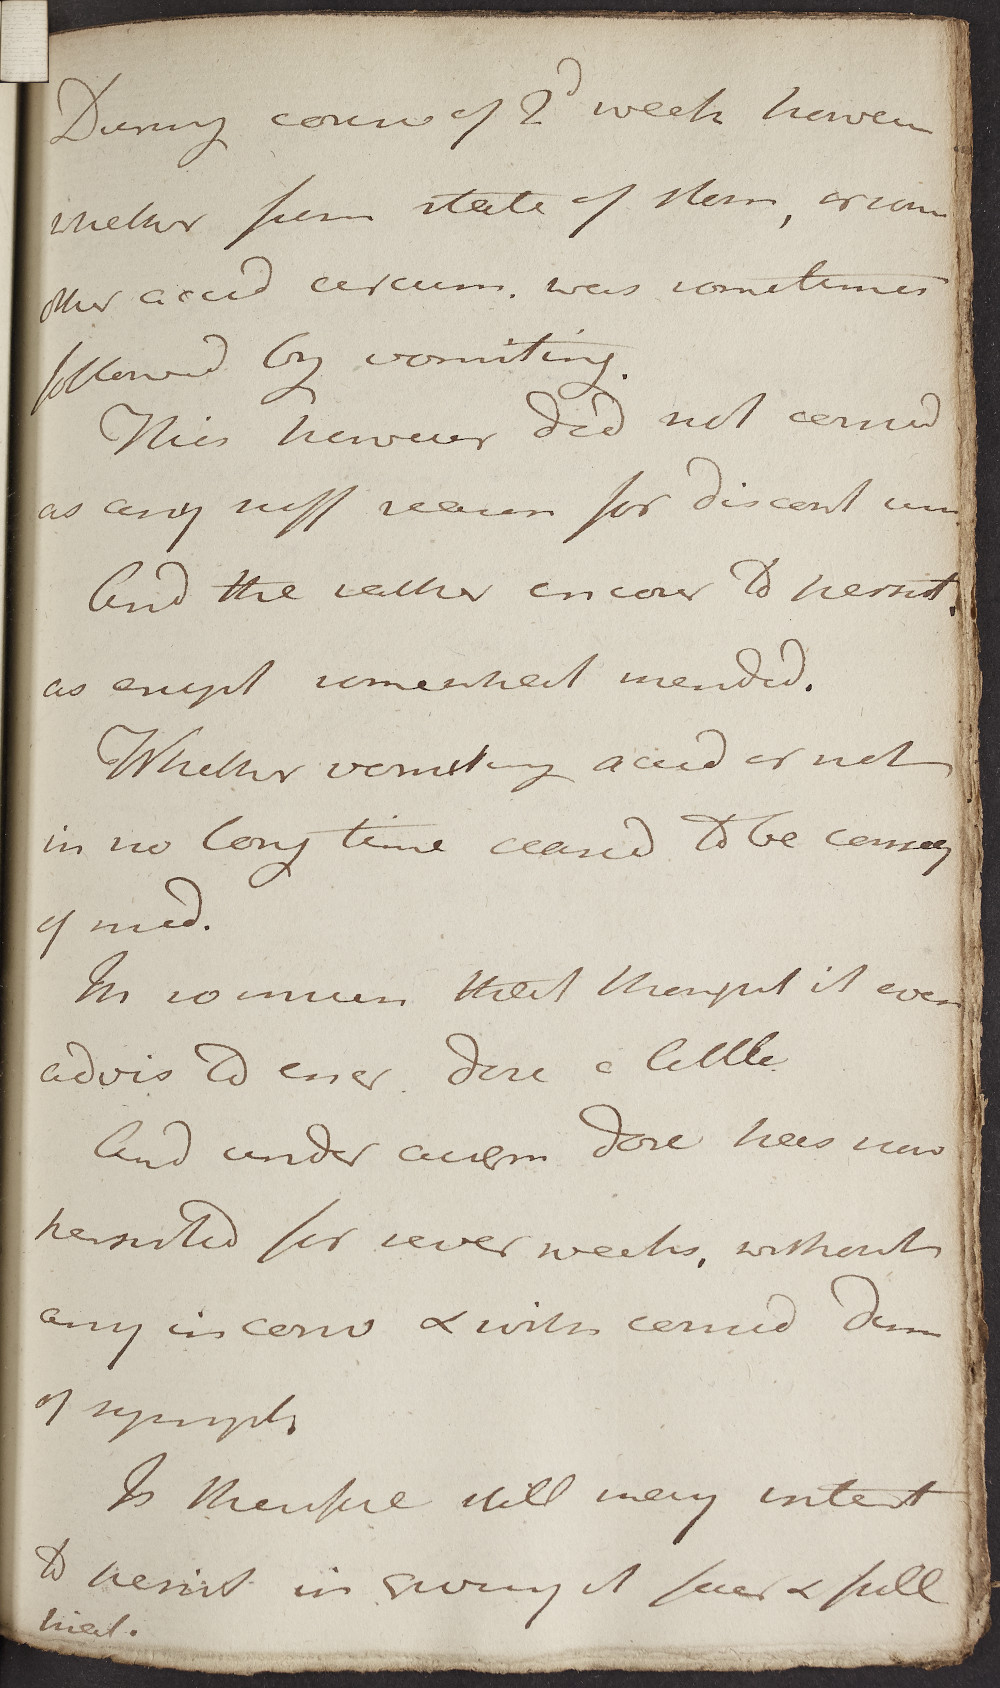 During course of 2d week however
whether from state of stom, or som
other accid circum. was sometimes
followed by vomiting.
This however did not consid
as any suff reason for discont
And the rather encour to persist,
as erupt somewhat mended.
Whether vomiting accid or not
in no long time ceased to be conseq
of med.
In so much that thought it even
advis to encr dose a little
And under augm dose has now
persisted for sever weeks, without
any inconv & with consid dim
of sympt.
Is therefore still very intent
to persist in giving it fair & full
trial.